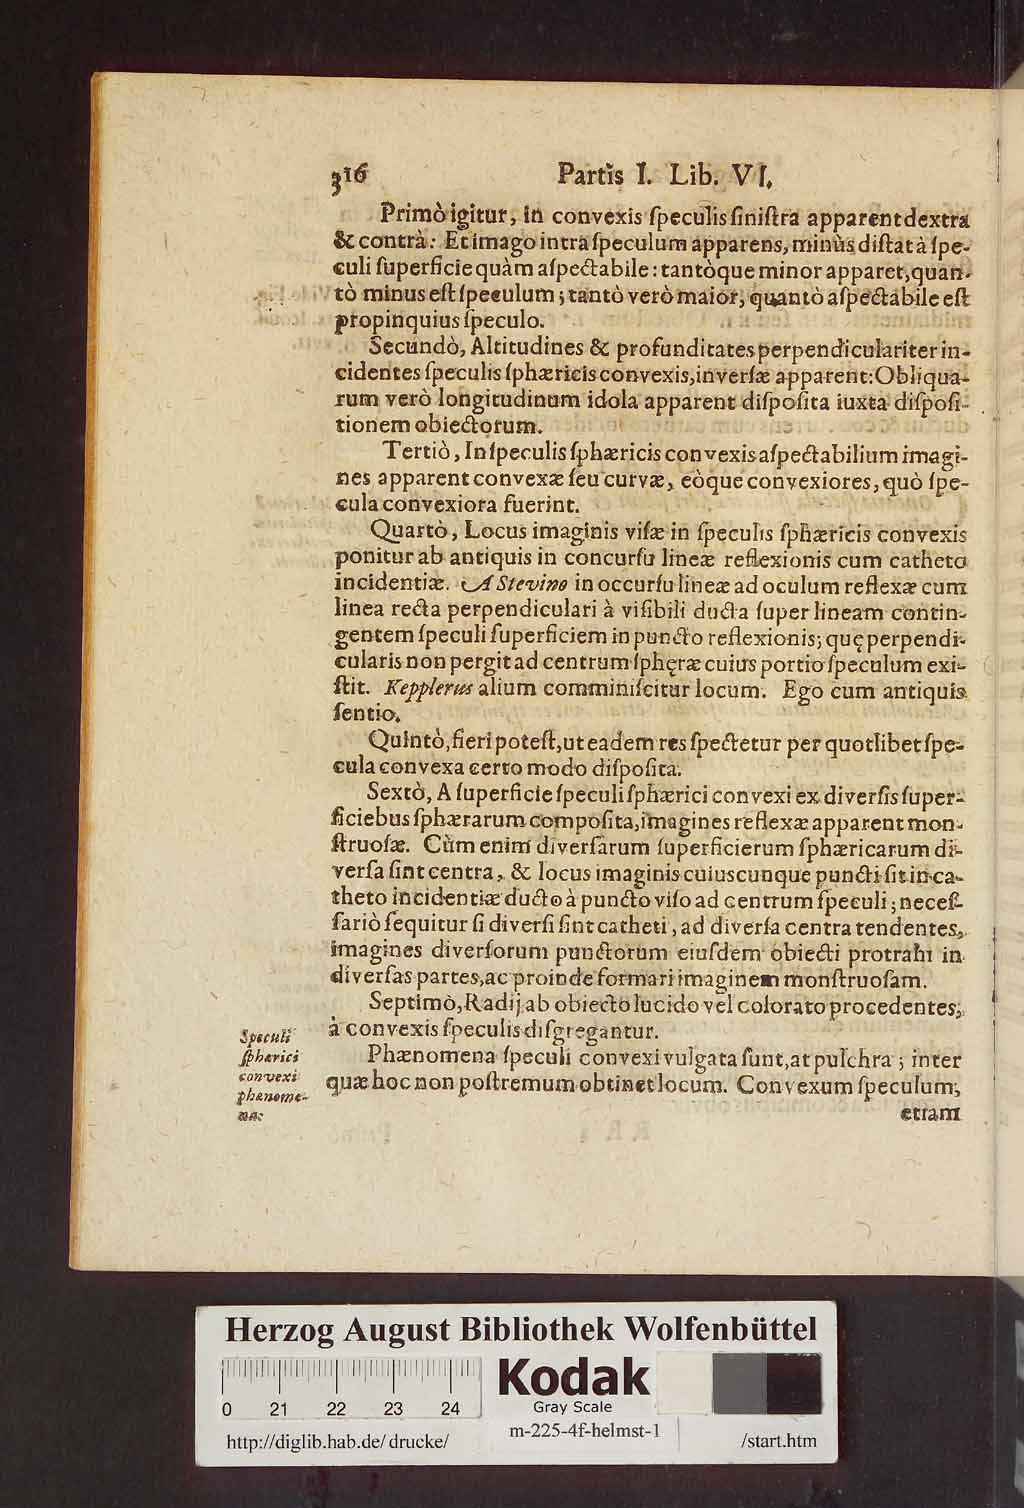 316 Partis I. Lib. VI.
Primò igitur, in convexis ſpeculis ſiniſtra apparent dextra
& contrà: Et imago intra ſpeculum apparens, minùs diſtat à ſpe-
culi ſuperficie quàm aſpectabile: tantòque minor apparet, quan-
tò minus eſt ſpeculum; tantò verò maior, quantò aſpectabile eſt
propinquius ſpeculo.
Secundò, Altitudines & profunditates perpendiculariter in-
cidentes ſpeculis ſphæricis convexis, inverſæ apparent: Obliqua-
rum verò longitudinum idola apparent diſpoſita iuxta diſpoſi-
tionem obiectorum.
Tertiò, In ſpeculis ſphæricis convexis aſpectabilium imagi-
nes apparent convexæ ſeu curvæ, eòque convexiores, quò ſpe-
cula convexiora fuerint.
Quartò, Locus imaginis viſæ in ſpeculis ſphæricis convexis
ponitur ab antiquis in concurſu lineæ reflexionis cum catheto
incidentiæ. A Stevino in occurſu lineæ ad oculum reflexæ cum
linea recta perpendiculari à viſibili ducta ſuper lineam contin-
gentem ſpeculi ſuperficiem in puncto reflexionis; quę perpendi-
cularis non pergit ad centrum ſphęræ cuius portio ſpeculum exi-
ſtit. Kepplerus alium comminiſcitur locum. Ego cum antiquis
ſentio.
Quintò, fieri poteſt, ut eadem res ſpectetur per quotlibet ſpe-
cula convexa certo modo diſpoſita.
Sextò, A ſuperficie ſpeculi ſphærici convexi ex diverſis ſuper-
ficiebus ſphærarum compoſita, imagines reflexæ apparent mon-
ſtruoſæ. Cùm enim diverſarum ſuperficierum ſphæricarum di-
verſa ſint centra, & locus imaginis cuiuscunque puncti ſit in ca-
theto incidentiæ ducto à puncto viſo ad centrum ſpeculi; neceſ-
ſariò ſequitur ſi diverſi ſint catheti, ad diverſa centra tendentes,
imagines diverſorum punctorum eiuſdem obiecti protrahi in
diverſas partes, ac proinde formari imaginem monſtruoſam.
Septimò, Radij ab obiecto lucido vel colorato procedentes,
à convexis ſpeculis diſgregantur.
Speculi
ſphærici
convexi
phænome-
na.
Phænomena ſpeculi convexi vulgata ſunt, at pulchra; inter
quæ hoc non poſtremum obtinet locum. Convexum ſpeculum,
etiam
Herzog August Bibliothek Wolfenbüttel
Kodak
Gray Scale
0 21 22 23 24
http://diglib.hab.de/drucke/
m-225-4f-helmst-1
/start.htm